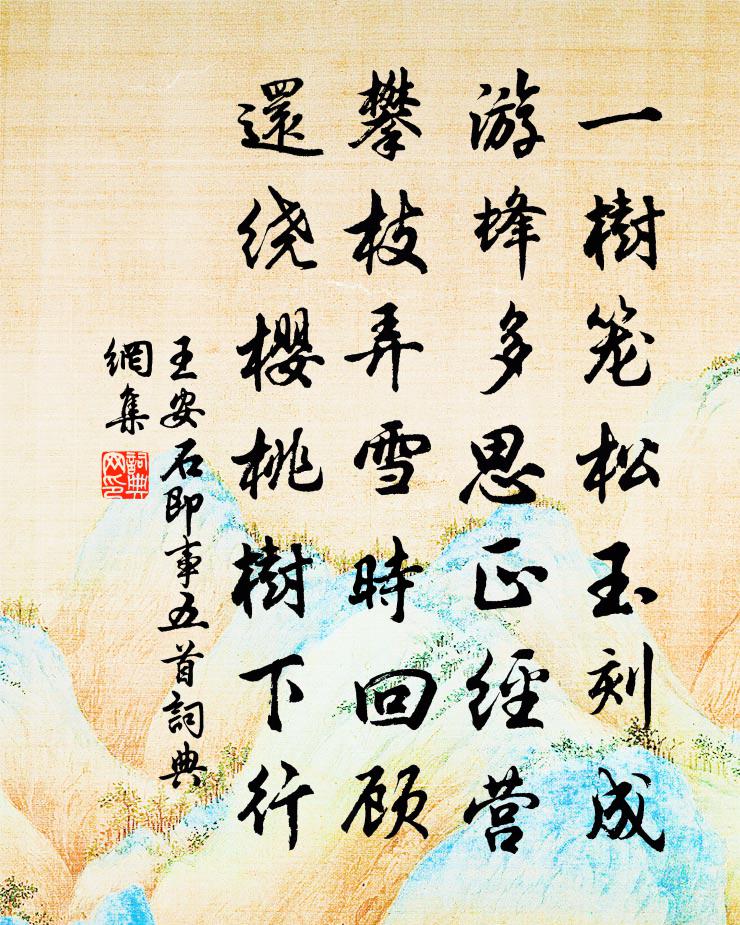 一樹笼松玉刻成
游蜂多思正經营
攀枝弄雪時回顾
還绕櫻桃樹下行
王安石即事五首詞典
網集
詞典
网印